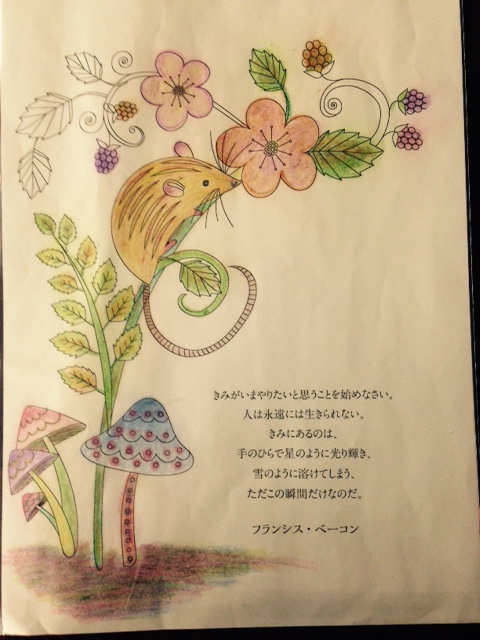 きみがいまやりたいと思うことを始めなさい。
人は永遠には生きられない。
きみにあるのは、
手のひらで星のように光り輝き、
雪のように溶けてしまう、
ただこの瞬間だけなのだ。
フランシス・ベーコン